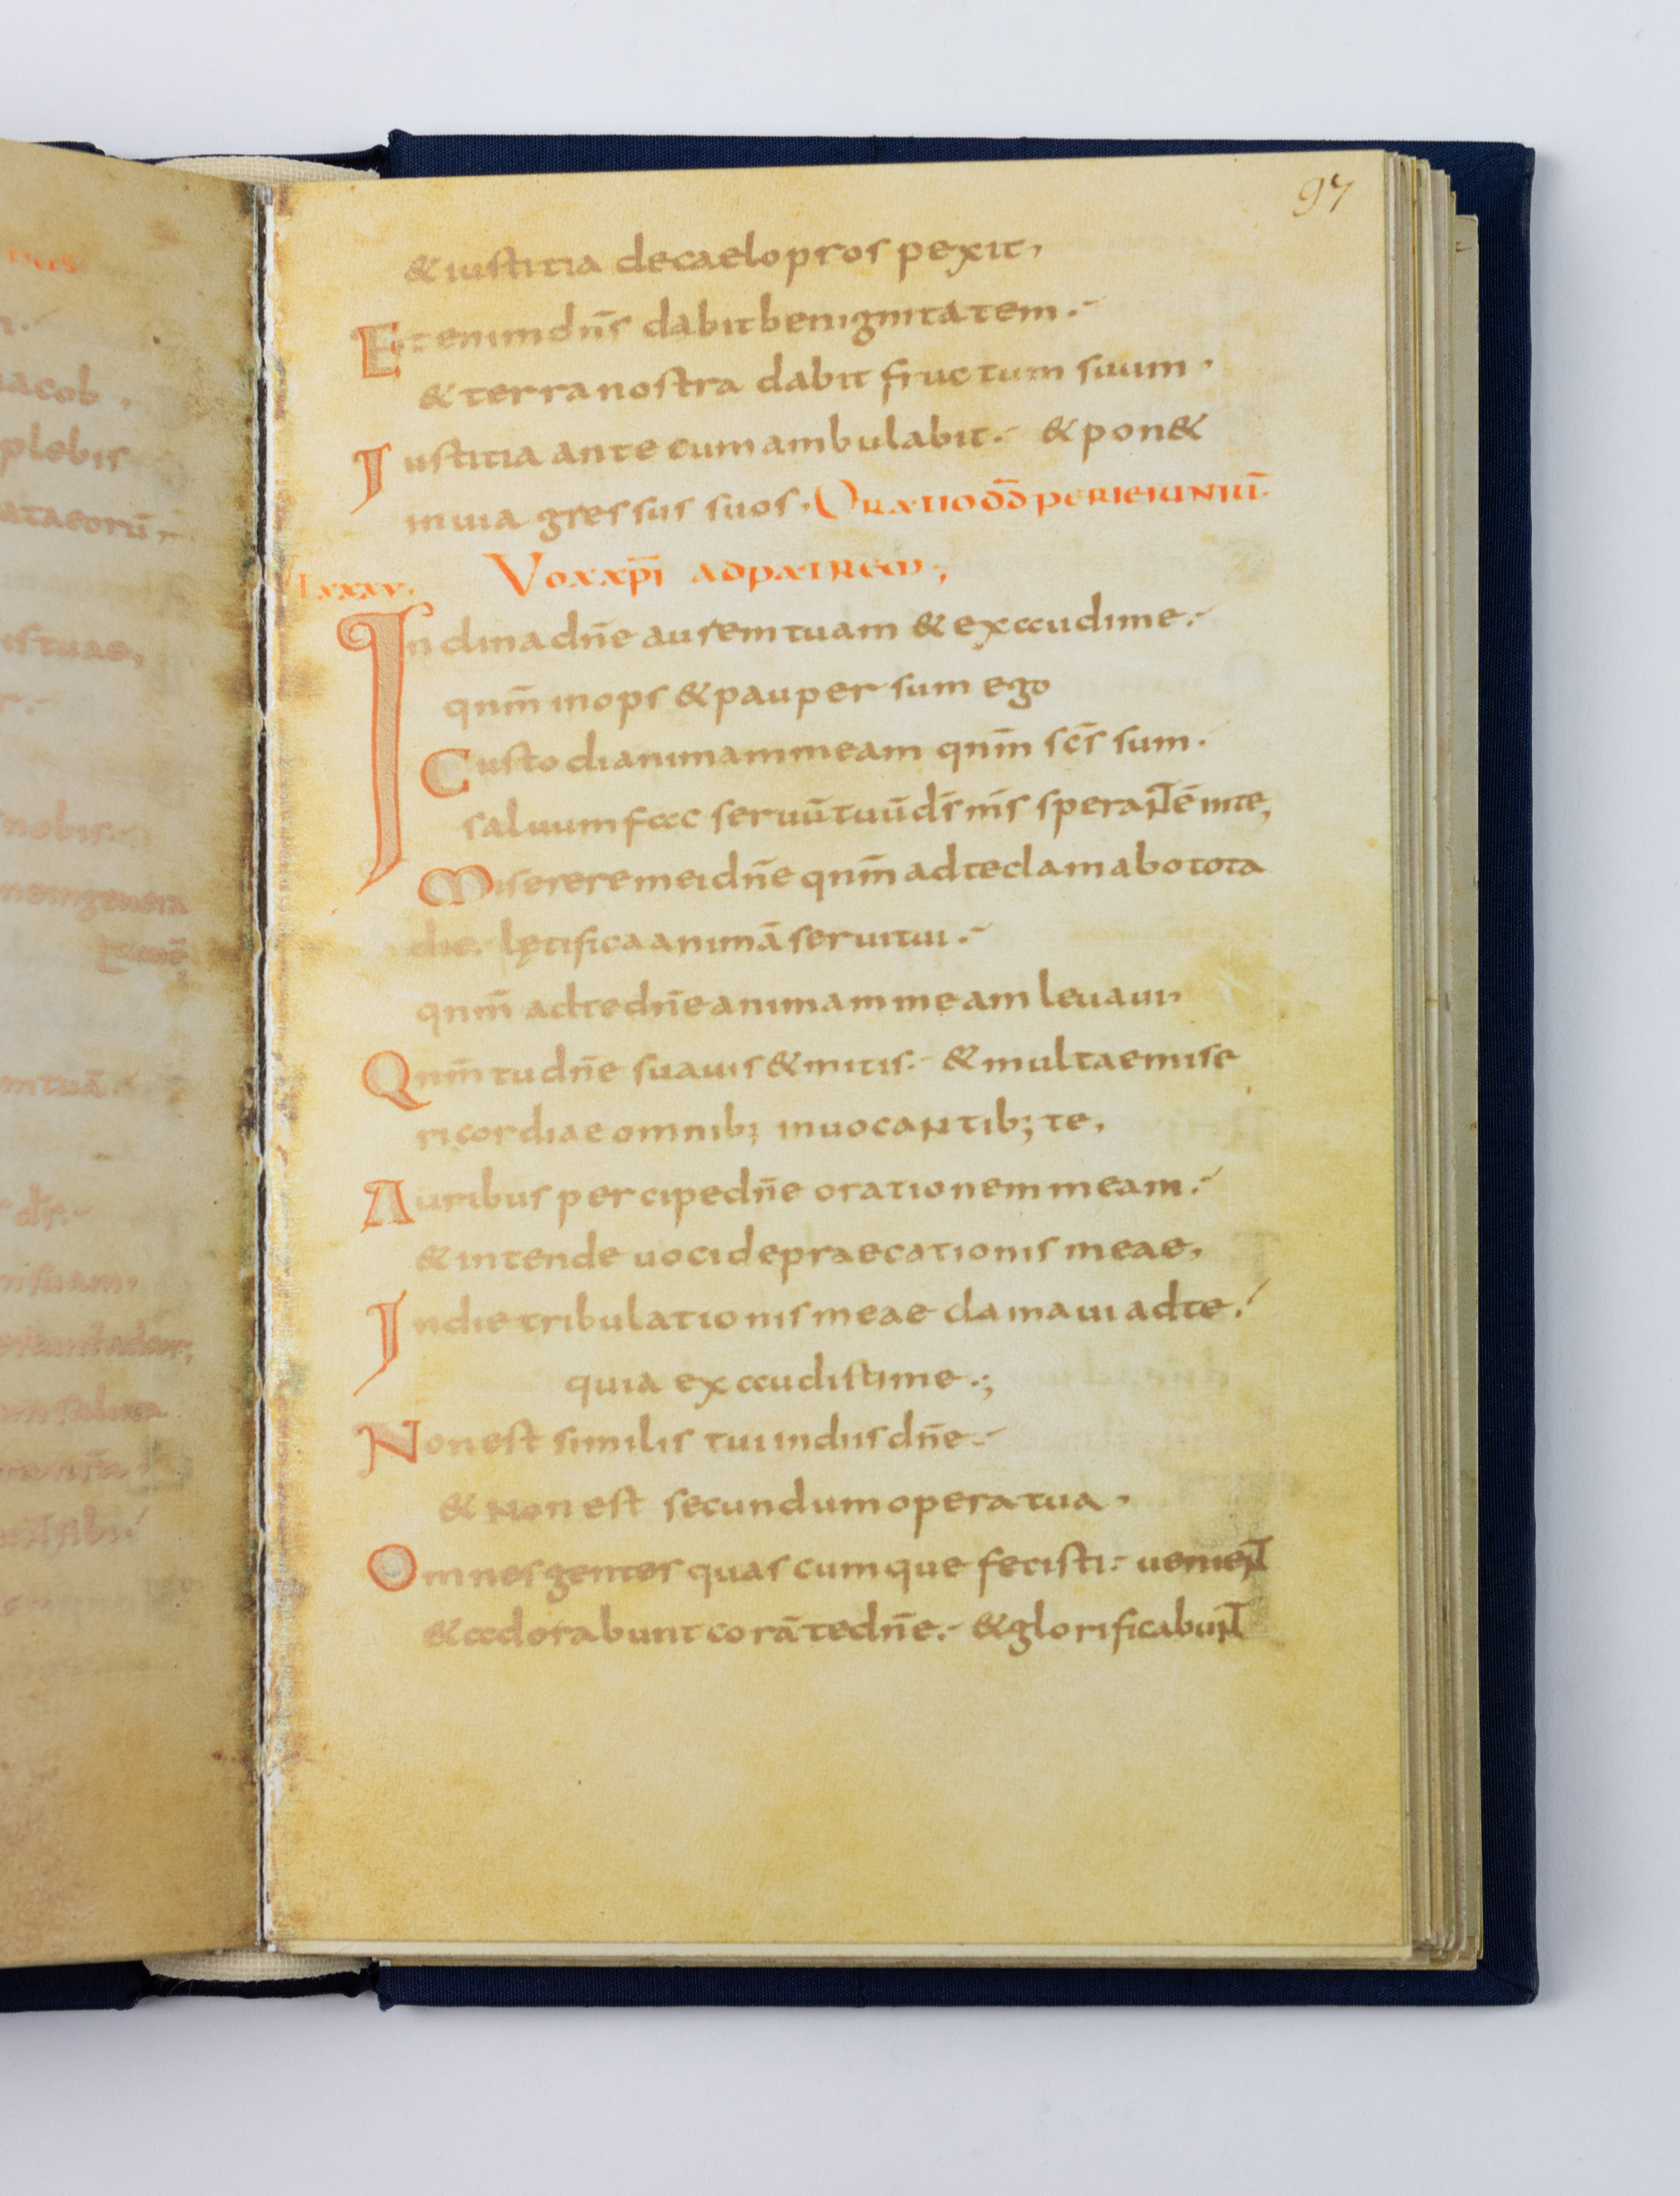 nus
97
& iustitia de caelo prospexit,
iacob,
plebis
istuae,
nobis.
mtuā
Etenim dn̄s dabit benignitatem.
& terra nostra dabit fructum suum,
Iustitia ante eum ambulabit. & pon&
in uia gressus suos, Oratio dd̄ per ieiuniū
Lxxxv. Vox xp̄i ad patrem;
Inclina dn̄e aurem tuam & exaudi me.
qnm̄ inops & pauper sum ego
Custodi animam meam qnm̄ sc̄s sum.
saluum fac seruū tuū d̄s m̄s sperantē in te,
Miserere mei dn̄e qnm̄ ad te clamabo tota
die. lętifica animā serui tui.
qnm̄ ad te dn̄e animam meam leuaui,
Qnm̄ tu dn̄e suauis & mitis. & multae mise
ricordiae omnib; inuocantib; te,
Auribus percipe dn̄e orationem meam.
& intende uoci depraecationis meae,
In die tribulationis meae clamaui ad te.
quia exaudisti me.;
Non est similis tui in diis dn̄e.
& non est secundum opera tua,
Omnes gentes quascumque fecisti. uenient
& adorabunt corā te dn̄e. & glorificabunt